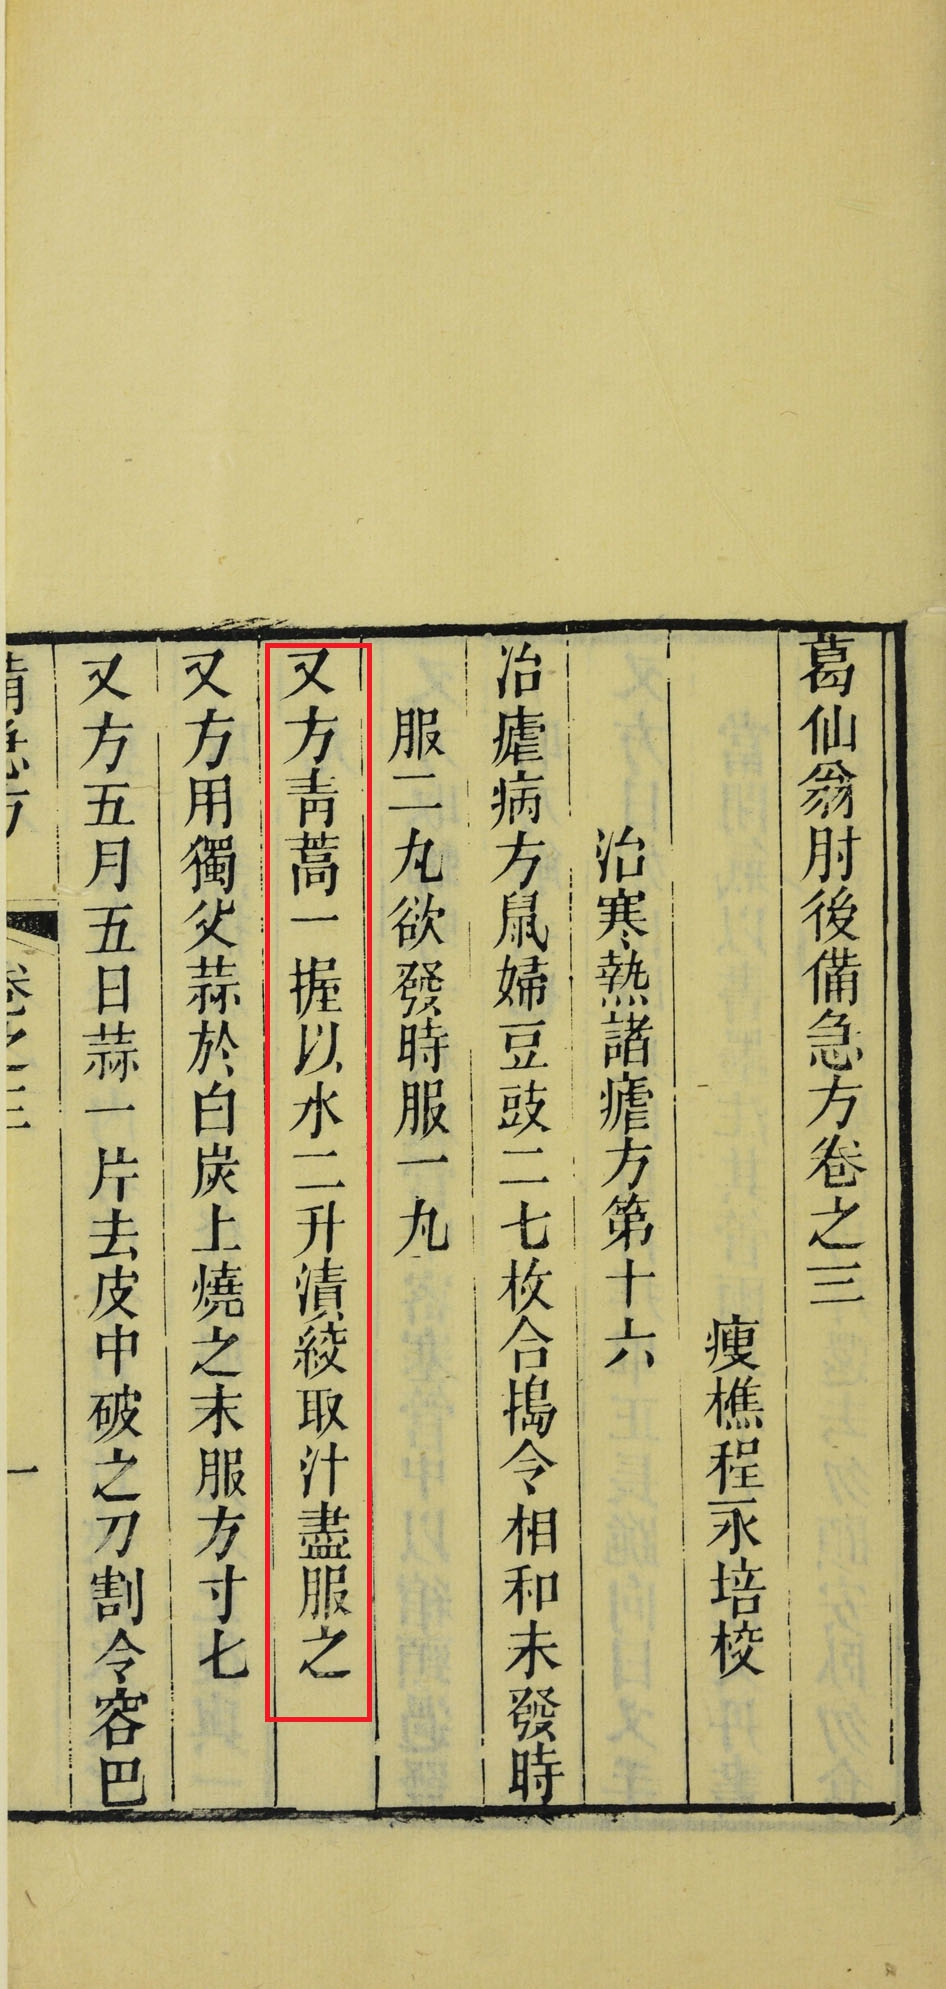 葛仙翁肘後備急方卷之三
瘦樵程永培校
治寒熱諸瘧方第十六
治瘧病方鼠婦豆豉二七枚合搗令相和未發時
服二丸欲發時服一丸
又方青蒿一握以水二升漬絞取汁盡服之
又方用獨父蒜於白炭上燒之末服方寸七
又方五月五日蒜一片去皮中破之刀割令容巴
備急方 卷之三 一